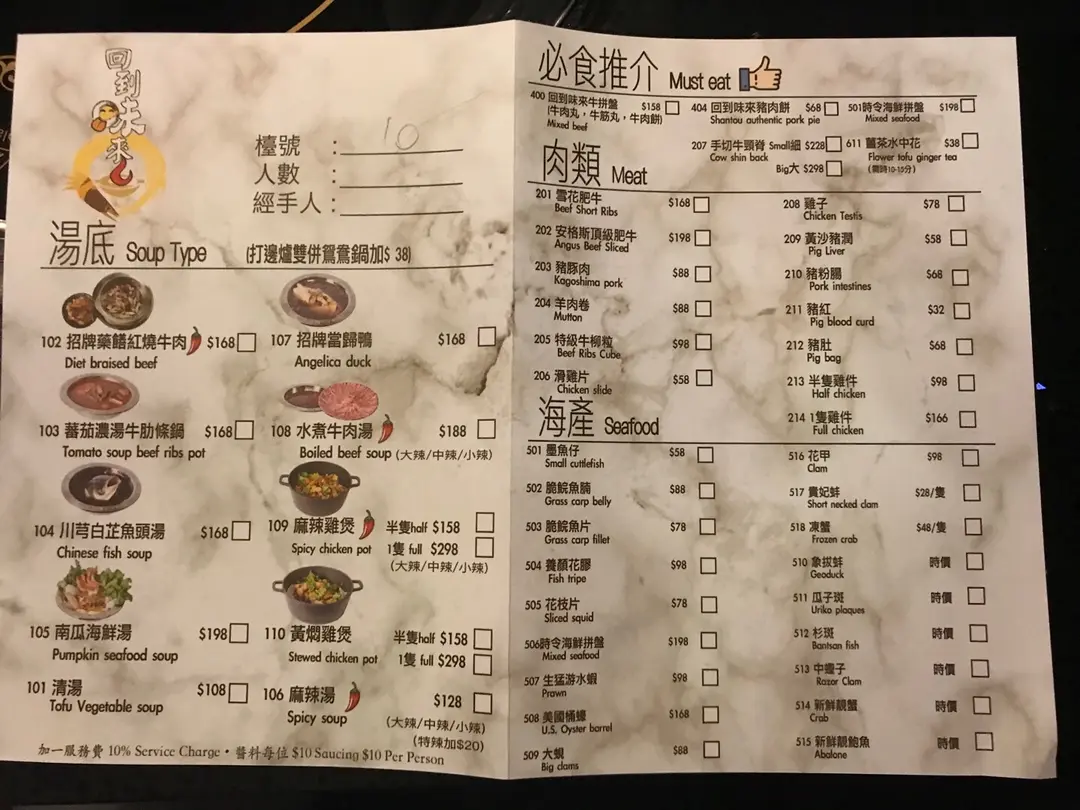 回到味來
檯號 : 10
人數 :
經手人 :
湯底 Soup Type (打邊爐雙併鴛鴦鍋加$ 38)
102 招牌藥饍紅燒牛肉 $168
Diet braised beef
107 招牌當歸鴨 $168
Angelica duck
103 蕃茄濃湯牛肋條鍋 $168
Tomato soup beef ribs pot
108 水煮牛肉湯 $188
Boiled beef soup (大辣/中辣/小辣)
104 川芎白芷魚頭湯 $168
Chinese fish soup
109 麻辣雞煲 半隻half $158
Spicy chicken pot 1隻 full $298
(大辣/中辣/小辣)
105 南瓜海鮮湯 $198
Pumpkin seafood soup
110 黃燜雞煲 半隻half $158
Stewed chicken pot 1隻 full $298
101 清湯 $108
Tofu Vegetable soup
106 麻辣湯 $128
Spicy soup (大辣/中辣/小辣)
(特辣加$20)
加一服務費 10% Service Charge • 醬料每位 $10 Saucing $10 Per Person
必食推介 Must eat
400 回到味來牛拼盤 $158
(牛肉丸，牛筋丸，牛肉餅)
Mixed beef
404 回到味來豬肉餅 $68
Shantou authentic pork pie
501時令海鮮拼盤 $198
Mixed seafood
207 手切牛頸脊 Small細 $228
Cow shin back Big大 $298
611 薑茶水中花 $38
Flower tofu ginger tea
(需時10-15分)
肉類 Meat
201 雪花肥牛 $168
Beef Short Ribs
202 安格斯頂級肥牛 $198
Angus Beef Sliced
203 豬豚肉 $88
Kagoshima pork
204 羊肉卷 $88
Mutton
205 特級牛柳粒 $98
Beef Ribs Cube
206 滑雞片 $58
Chicken slide
208 雞子 $78
Chicken Testis
209 黃沙豬潤 $58
Pig Liver
210 豬粉腸 $68
Pork intestines
211 豬紅 $32
Pig blood curd
212 豬肚 $68
Pig bag
213 半隻雞件 $98
Half chicken
214 1隻雞件 $166
Full chicken
海產 Seafood
501 墨魚仔 $58
Small cuttlefish
502 脆鯇魚腩 $88
Grass carp belly
503 脆鯇魚片 $78
Grass carp fillet
504 養顏花膠 $98
Fish tripe
505 花枝片 $78
Sliced squid
506時令海鮮拼盤 $198
Mixed seafood
507 生猛游水蝦 $98
Prawn
508 美國桶蠔 $168
U.S. Oyster barrel
509 大蜆 $88
Big clams
516 花甲 $98
Clam
517 貴妃蚌 $28/隻
Short necked clam
518 凍蟹 $48/隻
Frozen crab
510 象拔蚌 時價
Geoduck
511 瓜子斑 時價
Uriko plaques
512 杉斑 時價
Bantsan fish
513 中蟶子 時價
Razor Clam
514 新鮮靚蟹 時價
Crab
515 新鮮靚鮑魚 時價
Abalone